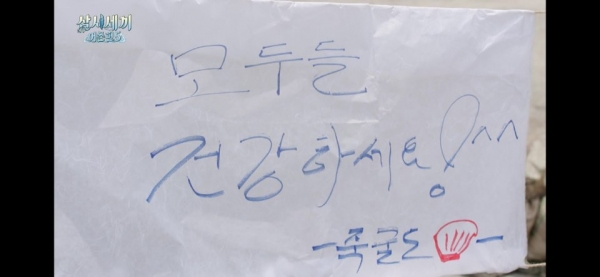 삼시세끼
어촌편5
모두들
건강하세요! ^^
-죽굴도-